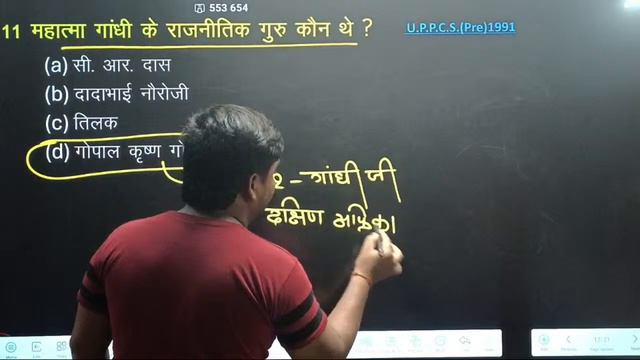 553 654
11 महात्मा गांधी के राजनीतिक गुरु कौन थे ?
U.P.P.C.S.(Pre)1991
(a) सी. आर. दास
(b) दादाभाई नौरोजी
(c) तिलक
(d) गोपाल कृष्ण गो
- गांधी जी
दक्षिण अफ्रिका